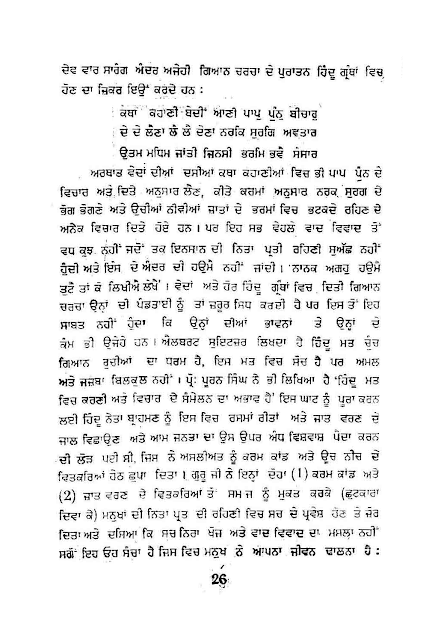 ਦੇਵ ਵਾਰ ਸਾਰੰਗ ਅੰਦਰ ਅਜੇਹੀ ਗਿਆਨ ਚਰਚਾ ਦੇ ਪੁਰਾਤਨ ਹਿੰਦੂ ਗ੍ਰੰਥਾਂ ਵਿਚ
ਹੋਣ ਦਾ ਜ਼ਿਕਰ ਇਉਂ ਕਰਦੇ ਹਨ :
ਕਥਾ ਕਹਾਣੀ ਬੇਦੀਂ ਆਣੀ ਪਾਪੁ ਪੁੰਨੁ ਬੀਚਾਰੁ
ਦੇ ਦੇ ਲੈਣਾ ਲੈ ਲੈ ਦੇਣਾ ਨਰਕਿ ਸੁਰਗਿ ਅਵਤਾਰ
ਉਤਮ ਮਧਿਮ ਜਾਤੀਂ ਜਿਨਸੀ ਭਰਮਿ ਭਵੈ ਸੰਸਾਰ
ਅਰਥਾਤ ਵੇਦਾਂ ਦੀਆਂ ਦਸੀਆਂ ਕਥਾ ਕਹਾਣੀਆਂ ਵਿਚ ਭੀ ਪਾਪ ਪੁੰਨ ਦੇ
ਵਿਚਾਰ ਅਤੇ ਦਿਤੇ ਅਨੁਸਾਰ ਲੈਣ, ਕੀਤੇ ਕਰਮਾਂ ਅਨੁਸਾਰ ਨਰਕ ਸੁਰਗ ਦੇ
ਭੋਗ ਭੋਗਣੇ ਅਤੇ ਉਚੀਆਂ ਨੀਵੀਆਂ ਜਾਤਾਂ ਦੇ ਭਰਮਾਂ ਵਿਚ ਭਟਕਦੇ ਰਹਿਣ ਦੇ
ਅਨੇਕ ਵਿਚਾਰ ਦਿਤੇ ਹੋਏ ਹਨ। ਪਰ ਇਹ ਸਭ ਵੇਹਲੇ ਵਾਦ ਵਿਵਾਦ ਤੋਂ
ਵਧ ਕੁਝ ਨਹੀਂ ਜਦੋਂ ਤਕ ਇਨਸਾਨ ਦੀ ਨਿਤਾ ਪ੍ਰਤੀ ਰਹਿਣੀ ਸੁਅੱਛ ਨਹੀਂ
ਹੁੰਦੀ ਅਤੇ ਇਸ ਦੇ ਅੰਦਰ ਦੀ ਹਉਮੈ ਨਹੀਂ ਜਾਂਦੀ। 'ਨਾਨਕ ਅਗਹੁ ਹਉਮੈ
ਤੁਟੈ ਤਾਂ ਕੋ ਲਿਖੀਐ ਲੇਖੈ'। ਵੇਦਾਂ ਅਤੇ ਹੋਰ ਹਿੰਦੂ ਗ੍ਰੰਥਾਂ ਵਿਚ ਦਿਤੀ ਗਿਆਨ
ਚਰਚਾ ਉਨ੍ਹਾਂ ਦੀ ਪੰਡਤਾਈ ਨੂੰ ਤਾਂ ਜ਼ਰੂਰ ਸਿਧ ਕਰਦੀ ਹੈ ਪਰ ਇਸ ਤੋਂ ਇਹ
ਸਾਬਤ ਨਹੀਂ ਹੁੰਦਾ ਕਿ ਉਨ੍ਹਾਂ ਦੀਆਂ ਭਾਵਨਾਂ ਤੇ ਉਨ੍ਹਾਂ ਦੇ
ਕੰਮ ਭੀ ਉਜੇਹੇ ਹਨ। ਐਲਬਰਟ ਸੁਇਟਜ਼ਰ ਲਿਖਦਾ ਹੈ ਹਿੰਦੂ ਮਤ ਚੁੰਚ
ਗਿਆਨ ਰੁਚੀਆਂ ਦਾ ਧਰਮ ਹੈ, ਇਸ ਮਤ ਵਿਚ ਸੋਚ ਹੈ ਪਰ ਅਮਲ
ਅਤੇ ਜਜ਼ਬਾ ਬਿਲਕੁਲ ਨਹੀਂ'। ਪ੍ਰੋ: ਪੂਰਨ ਸਿੰਘ ਨੇ ਭੀ ਲਿਖਿਆ ਹੈ 'ਹਿੰਦੂ ਮਤ
ਵਿਚ ਕਰਣੀ ਅਤੇ ਵਿਚਾਰ ਦੇ ਸੰਮੇਲਨ ਦਾ ਅਭਾਵ ਹੈ' ਇਸ ਘਾਟ ਨੂੰ ਪੂਰਾ ਕਰਨ
ਲਈ ਹਿੰਦੂ ਨੇਤਾ ਬ੍ਰਾਹਮਣ ਨੂੰ ਇਸ ਵਿਚ ਰਸਮਾਂ ਰੀਤਾਂ ਅਤੇ ਜਾਤ ਵਰਣ ਦੇ
ਜਾਲ ਵਿਛਾਉਣ ਅਤੇ ਆਮ ਜਨਤਾ ਦਾ ਉਸ ਉਪਰ ਅੰਧ ਵਿਸ਼ਵਾਸ਼ ਪੈਦਾ ਕਰਨ
ਦੀ ਲੋੜ ਪਈ ਸੀ, ਜਿਸ ਨੇ ਅਸਲੀਅਤ ਨੂੰ ਕਰਮ ਕਾਂਡ ਅਤੇ ਊਚ ਨੀਚ ਦੇ
ਵਿਤਕਰਿਆਂ ਹੇਠ ਛੁਪਾ ਦਿਤਾ। ਗੁਰੂ ਜੀ ਨੇ ਇਨ੍ਹਾਂ ਦੋਹਾਂ (1) ਕਰਮ ਕਾਂਡ ਅਤੇ
(2) ਜਾਤ ਵਰਣ ਦੇ ਵਿਤਕਰਿਆਂ ਤੋਂ ਸਮਾਜ ਨੂੰ ਮੁਕਤ ਕਰਕੇ (ਛੁਟਕਾਰਾ
ਦਿਵਾ ਕੇ) ਮਨੁਖਾਂ ਦੀ ਨਿਤਾ ਪ੍ਰਤ ਦੀ ਰਹਿਣੀ ਵਿਚ ਸਚ ਦੇ ਪ੍ਰਵੇਸ਼ ਹੋਣ ਤੇ ਜ਼ੋਰ
ਦਿਤਾ ਅਤੇ ਦਸਿਆ ਕਿ ਸਚ ਨਿਰਾ ਖੋਜ ਅਤੇ ਵਾਦ ਵਿਵਾਦ ਦਾ ਮਸਲਾ ਨਹੀਂ
ਸਗੋਂ ਇਹ ਓਹ ਸੰਚਾ ਹੈ ਜਿਸ ਵਿਚ ਮਨੁਖ ਨੇ ਆਪਨਾ ਜੀਵਨ ਢਾਲਨਾ ਹੈ :
26